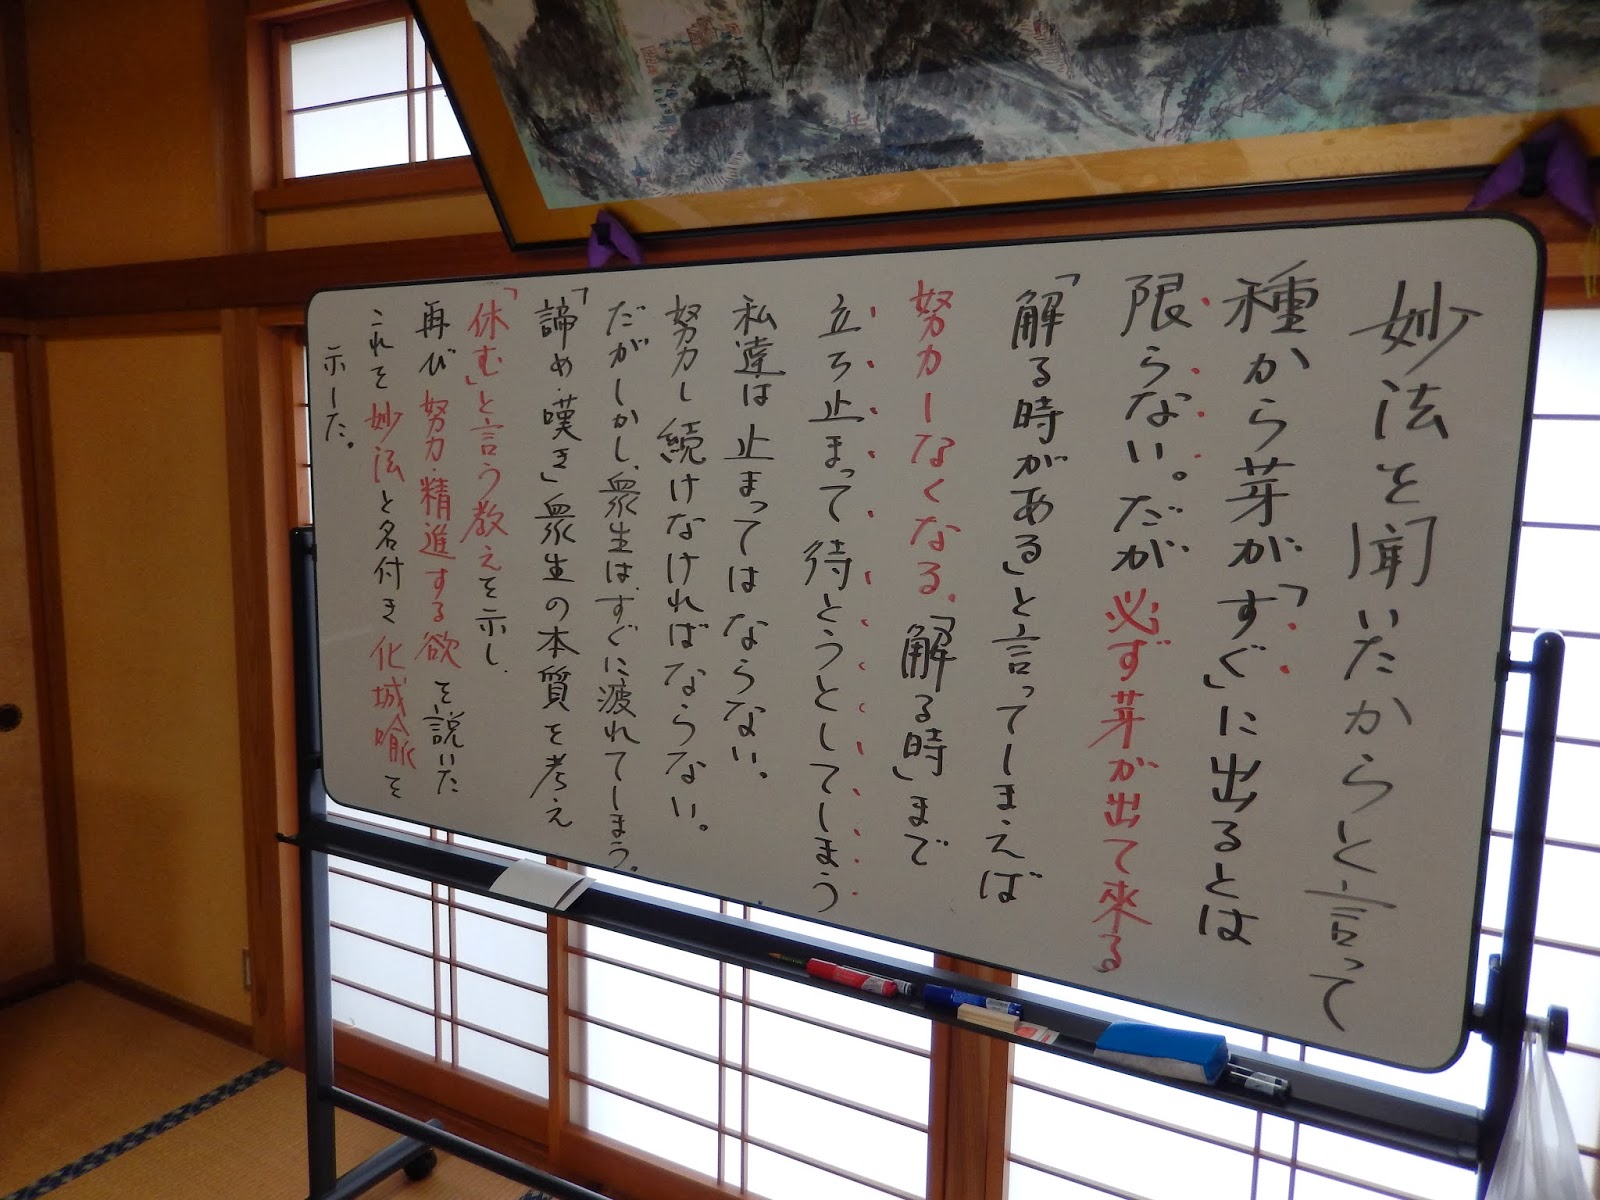 妙法を聞いたからと言って
種から芽が「すぐ」に出るとは
限らない。だが必ず芽が出て来る
「解る時がある」と言ってしまえば
努力しなくなる、「解る時」まで
立ち止まって待とうとしてしまう
私達は止まってはならない。
努力し続けなければならない。
だがしかし、衆生は、すぐに疲れてしまう。
「諦め・嘆き」衆生の本質を考え
「休む」と言う教えを示し、
再び努力・精進する欲を説いた
これを妙法と名付き化城喩を
示した。